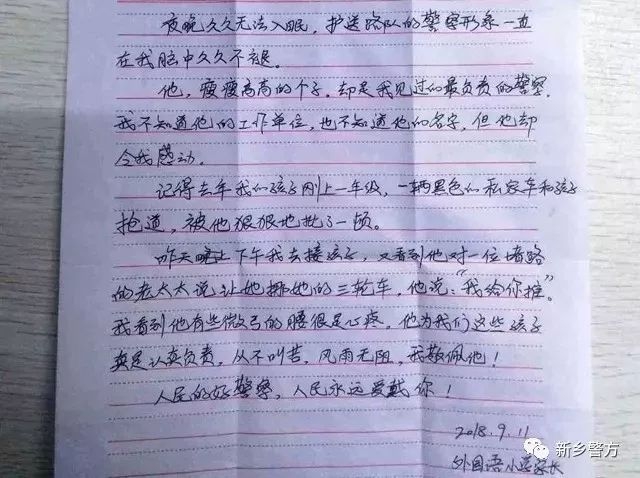 夜晚久久无法入眠，护送路队的警察形象一直
在我脑中久久不退。
他，瘦瘦高高的个子，却是我见过的最负责的警察，
我不知道他的工作单位，也不知道他的名字，但他却
令我感动。
记得去年我们孩子刚上一年级，一辆黑色的私家车和孩子
抢道，被他狠狠地批了一顿。
昨天下午我去接孩子，又看到他对一位堵路
的老太太说让她挪她的三轮车，他说："我给你推"。
我看到他有些微弓的腰很是心疼，他为我们这些孩子
真是认真负责，从不叫苦，风雨无阻，我敬佩他！
人民的好警察，人民永远爱戴你！
2018.9.11
外国语小学家长
新乡警方